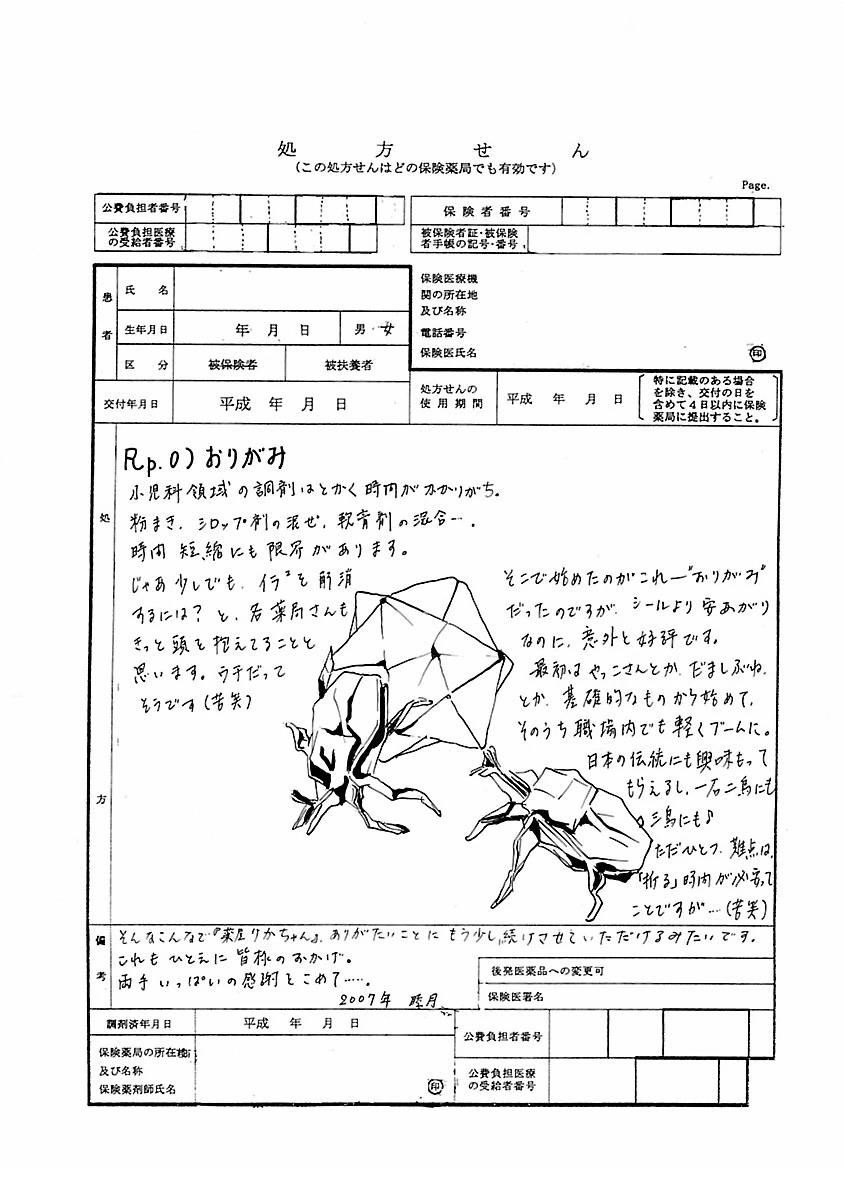 処方せん
(この処方せんはどの保険薬局でも有効です)
Page.
公費負担者番号
保険者番号
公費負担医療
の受給者番号
被保険者証・被保険
者手帳の記号・番号
患者
氏名
生年月日
年 月 日
男・女
区分
被保険者
被扶養者
保険医療機
関の所在地
及び名称
電話番号
保険医氏名
印
交付年月日
平成 年 月 日
処方せんの
使用期間
平成 年 月 日
特に記載のある場合
を除き、交付の日を
含めて4日以内に保険
薬局に提出すること。
処方
Rp.0) おりがみ
小児科領域の調剤はとかく時間がかかりがち。
粉まき、シロップ剤の混ぜ、軟膏剤の混合…。
時間短縮にも限界があります。
じゃあ少しでも、イライラを解消
するには? と、各薬局さんも
きっと頭を抱えてることと
思います。ウチだって
そうです(苦笑)
そこで始めたのがこれ―"おりがみ"
だったのですが、シールより安あがり
なのに、意外と好評です。
最初はやっこさんとか、だましぶね、
とか、基礎的なものから始めて、
そのうち職場内でも軽くブームに。
日本の伝統にも興味もって
もらえるし、一石二鳥にも
三鳥にも♪
ただひとつ、難点は、
「折る」時間が必要って
ことですが…(苦笑)
備考
そんなこんなで『薬屋りかちゃん』、ありがたいことにもう少し続けさせていただけるみたいです。
これもひとえに皆様のおかげ。
両手いっぱいの感謝をこめて……。
2007年 睦月
後発医薬品への変更可
保険医署名
調剤済年月日
平成 年 月 日
公費負担者番号
保険薬局の所在地
及び名称
保険薬剤師氏名
印
公費負担医療
の受給者番号